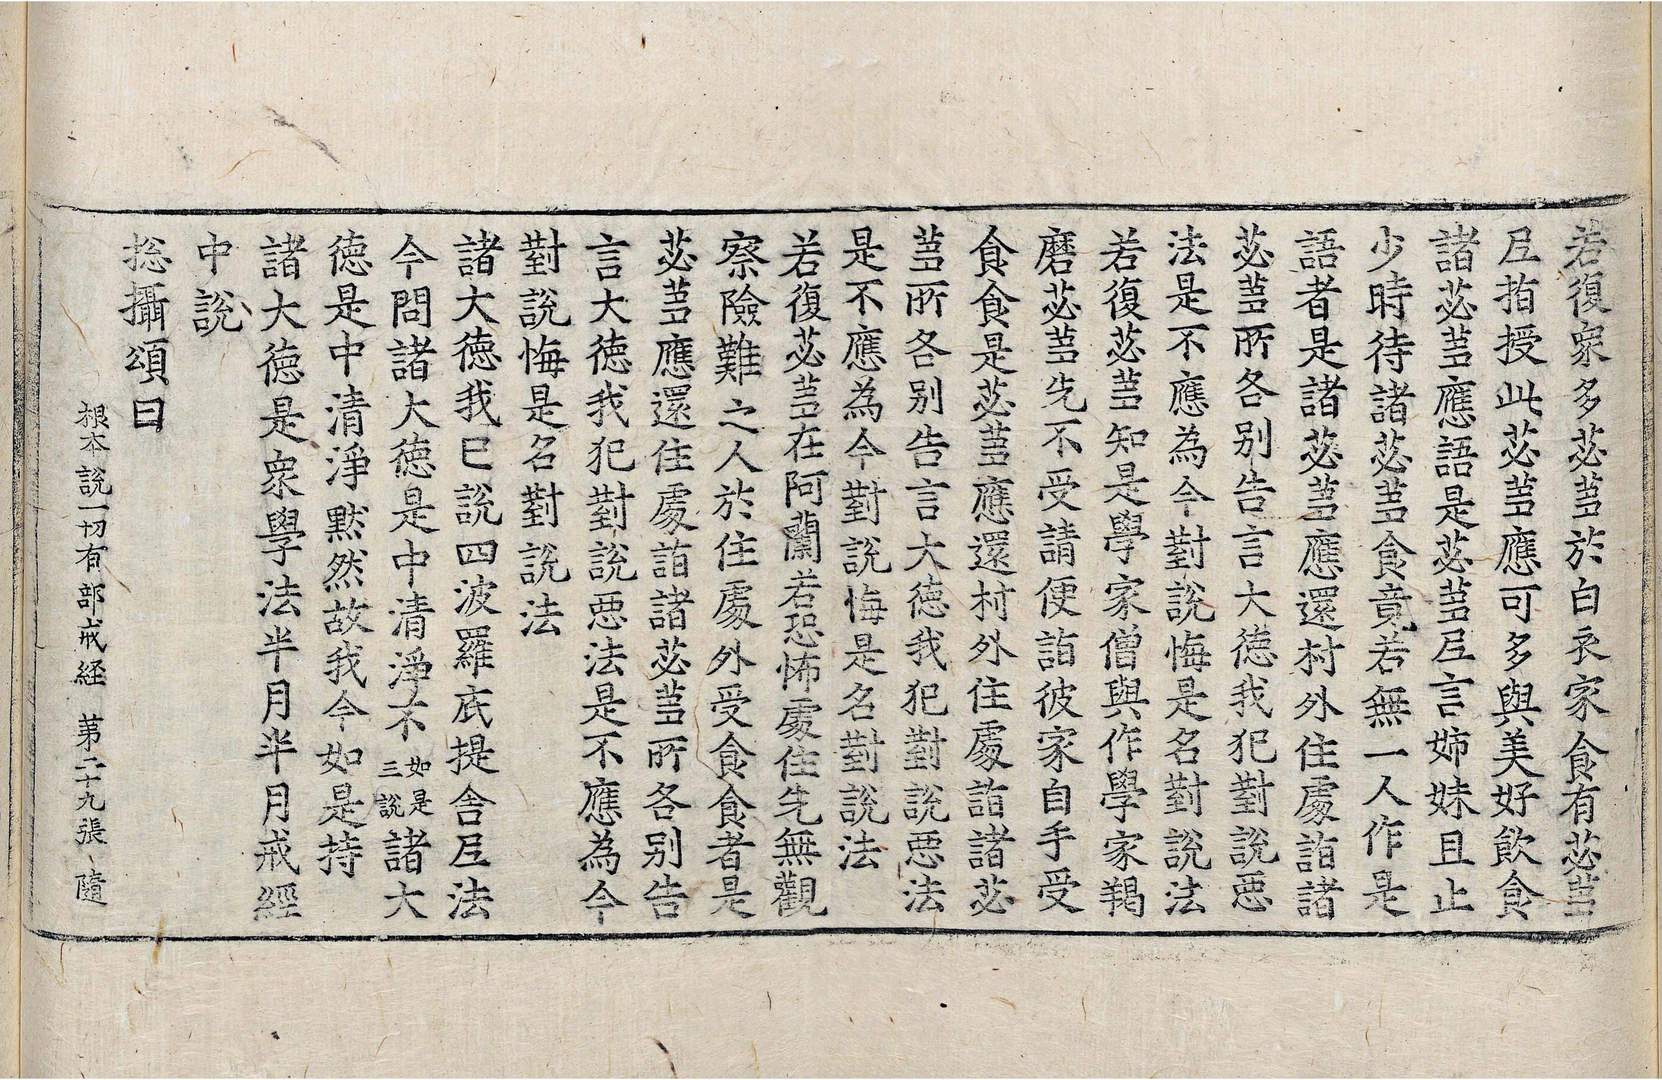 若復衆多苾蒭於白衣家食有苾蒭
尼指授此苾蒭應可多與美好飲食
諸苾蒭應語是苾蒭尼言姉妹且止
少時待諸苾蒭食竟若無一人作是
語者是諸苾蒭應還村外住處詣諸
苾蒭所各别告言大德我犯對說惡
法是不應為今對說悔是名對說法
若復苾蒭知是學家僧與作學家羯
磨苾蒭先不受請便詣彼家自手受
食食是苾蒭應還村外住處詣諸苾
蒭所各别告言大德我犯對說惡法
是不應為今對說悔是名對說法
若復苾蒭在阿蘭若恐怖處住先無觀
察險難之人於住處外受食食者是
苾蒭應還住處詣諸苾蒭所各别告
言大德我犯對說惡法是不應為今
對說悔是名對說法
諸大德我已說四波羅底提舍尼法
今問諸大德是中清淨不如是三說諸大
德是中清淨默然故我今如是持
諸大德是衆學法半月半月戒經
中說
捴攝頌曰
根本說一切有部戒経 第二十九張 隨